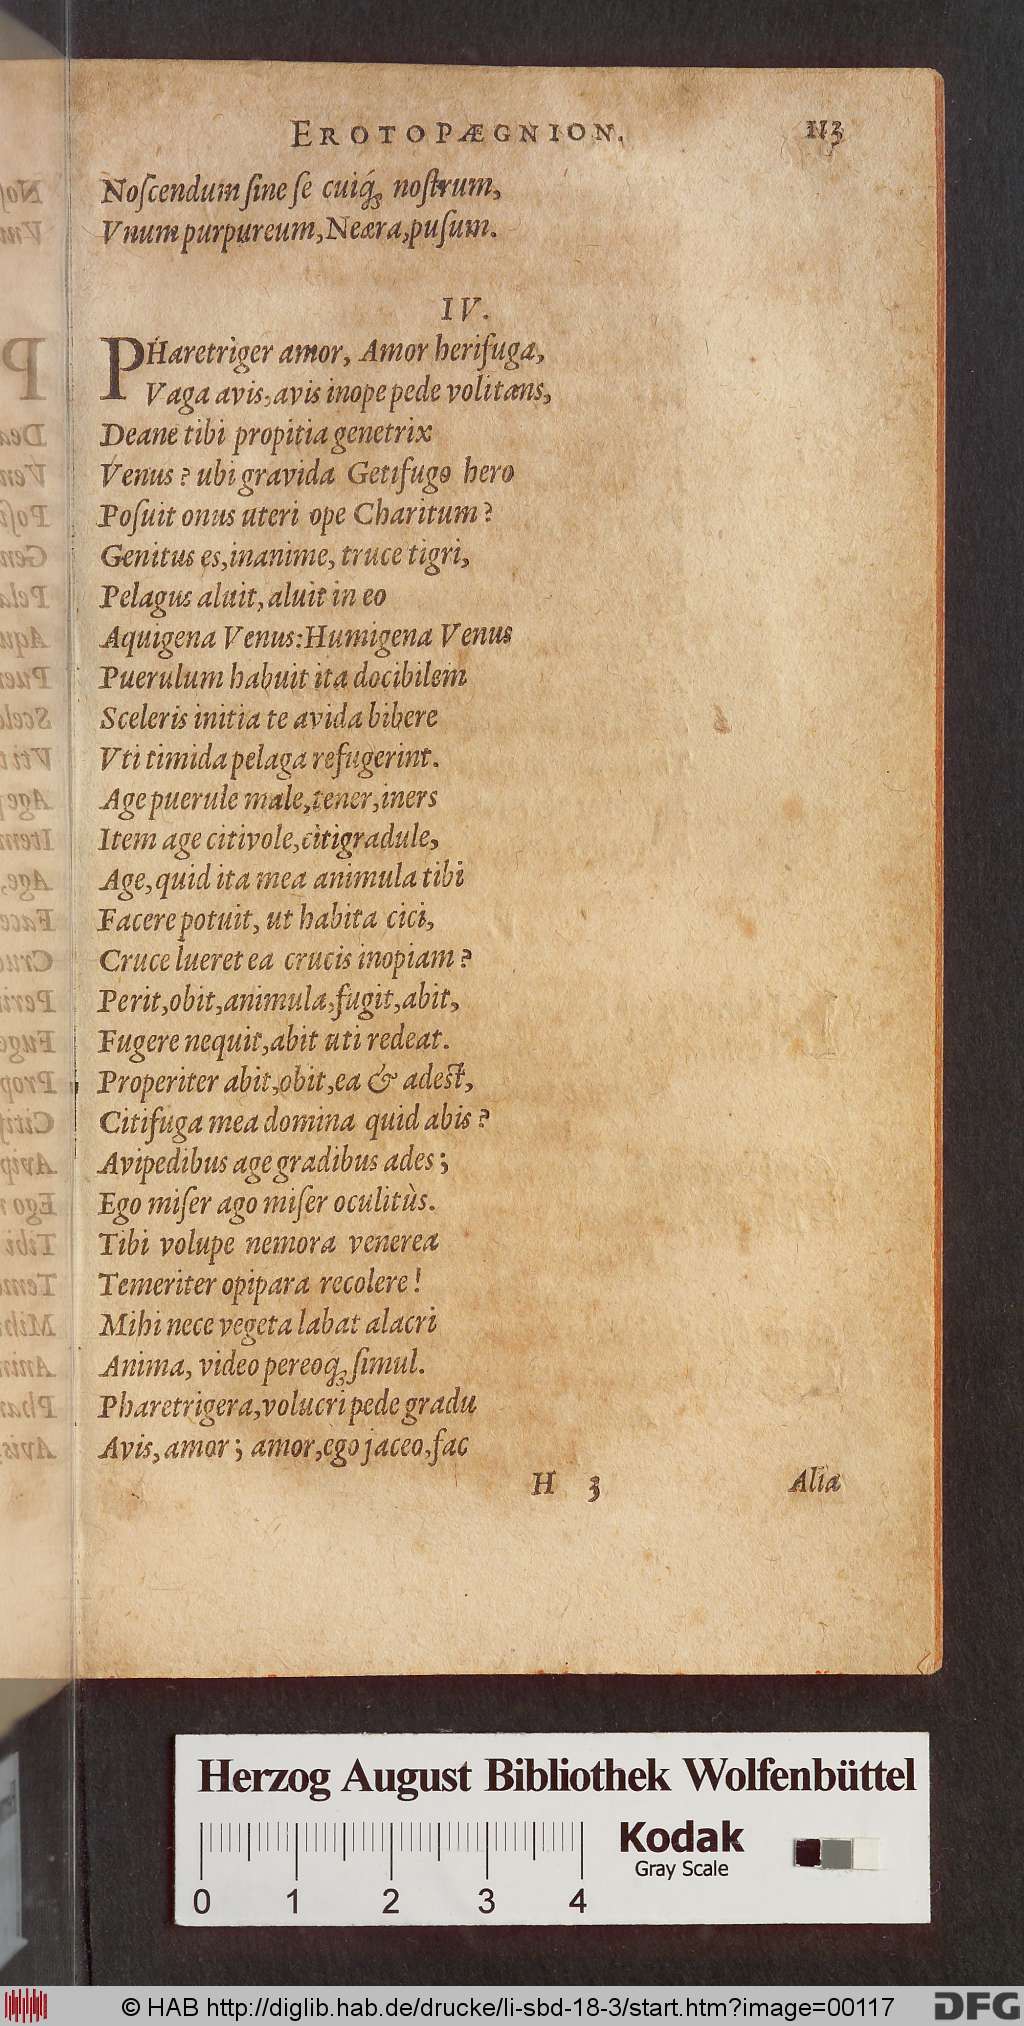 EROTOPÆGNION. 113
Noſcendum ſine ſe cuiq́ꝫ noſtrum,
Vnum purpureum, Neæra, puſum.
IV.
PHaretriger amor, Amor herifuga,
Vaga avis, avis inope pede volitans,
Deane tibi propitia genetrix
Venus? ubi gravida Getifugo hero
Poſuit onus uteri ope Charitum?
Genitus es, inanime, truce tigri,
Pelagus aluit, aluit in eo
Aquigena Venus: Humigena Venus
Puerulum habuit ita docibilem
Sceleris initia te avida bibere
Vti timida pelaga refugerint.
Age puerule male, tener, iners
Item age citivole, citigradule,
Age, quid ita mea animula tibi
Facere potuit, ut habita cici,
Cruce lueret ea crucis inopiam?
Perit, obit, animula, fugit, abit,
Fugere nequit, abit uti redeat.
Properiter abit, obit, ea & adeſt,
Citifuga mea domina quid abis?
Avipedibus age gradibus ades;
Ego miſer ago miſer oculitùs.
Tibi volupe nemora venerea
Temeriter opipara recolere!
Mihi nece vegeta labat alacri
Anima, video pereoqꝫ ſimul.
Pharetrigera, volucri pede gradu
Avis, amor; amor, ego jaceo, fac
H 3 Alia
Herzog August Bibliothek Wolfenbüttel
Kodak
Gray Scale
0 1 2 3 4
© HAB http://diglib.hab.de/drucke/li-sbd-18-3/start.htm?image=00117 DFG